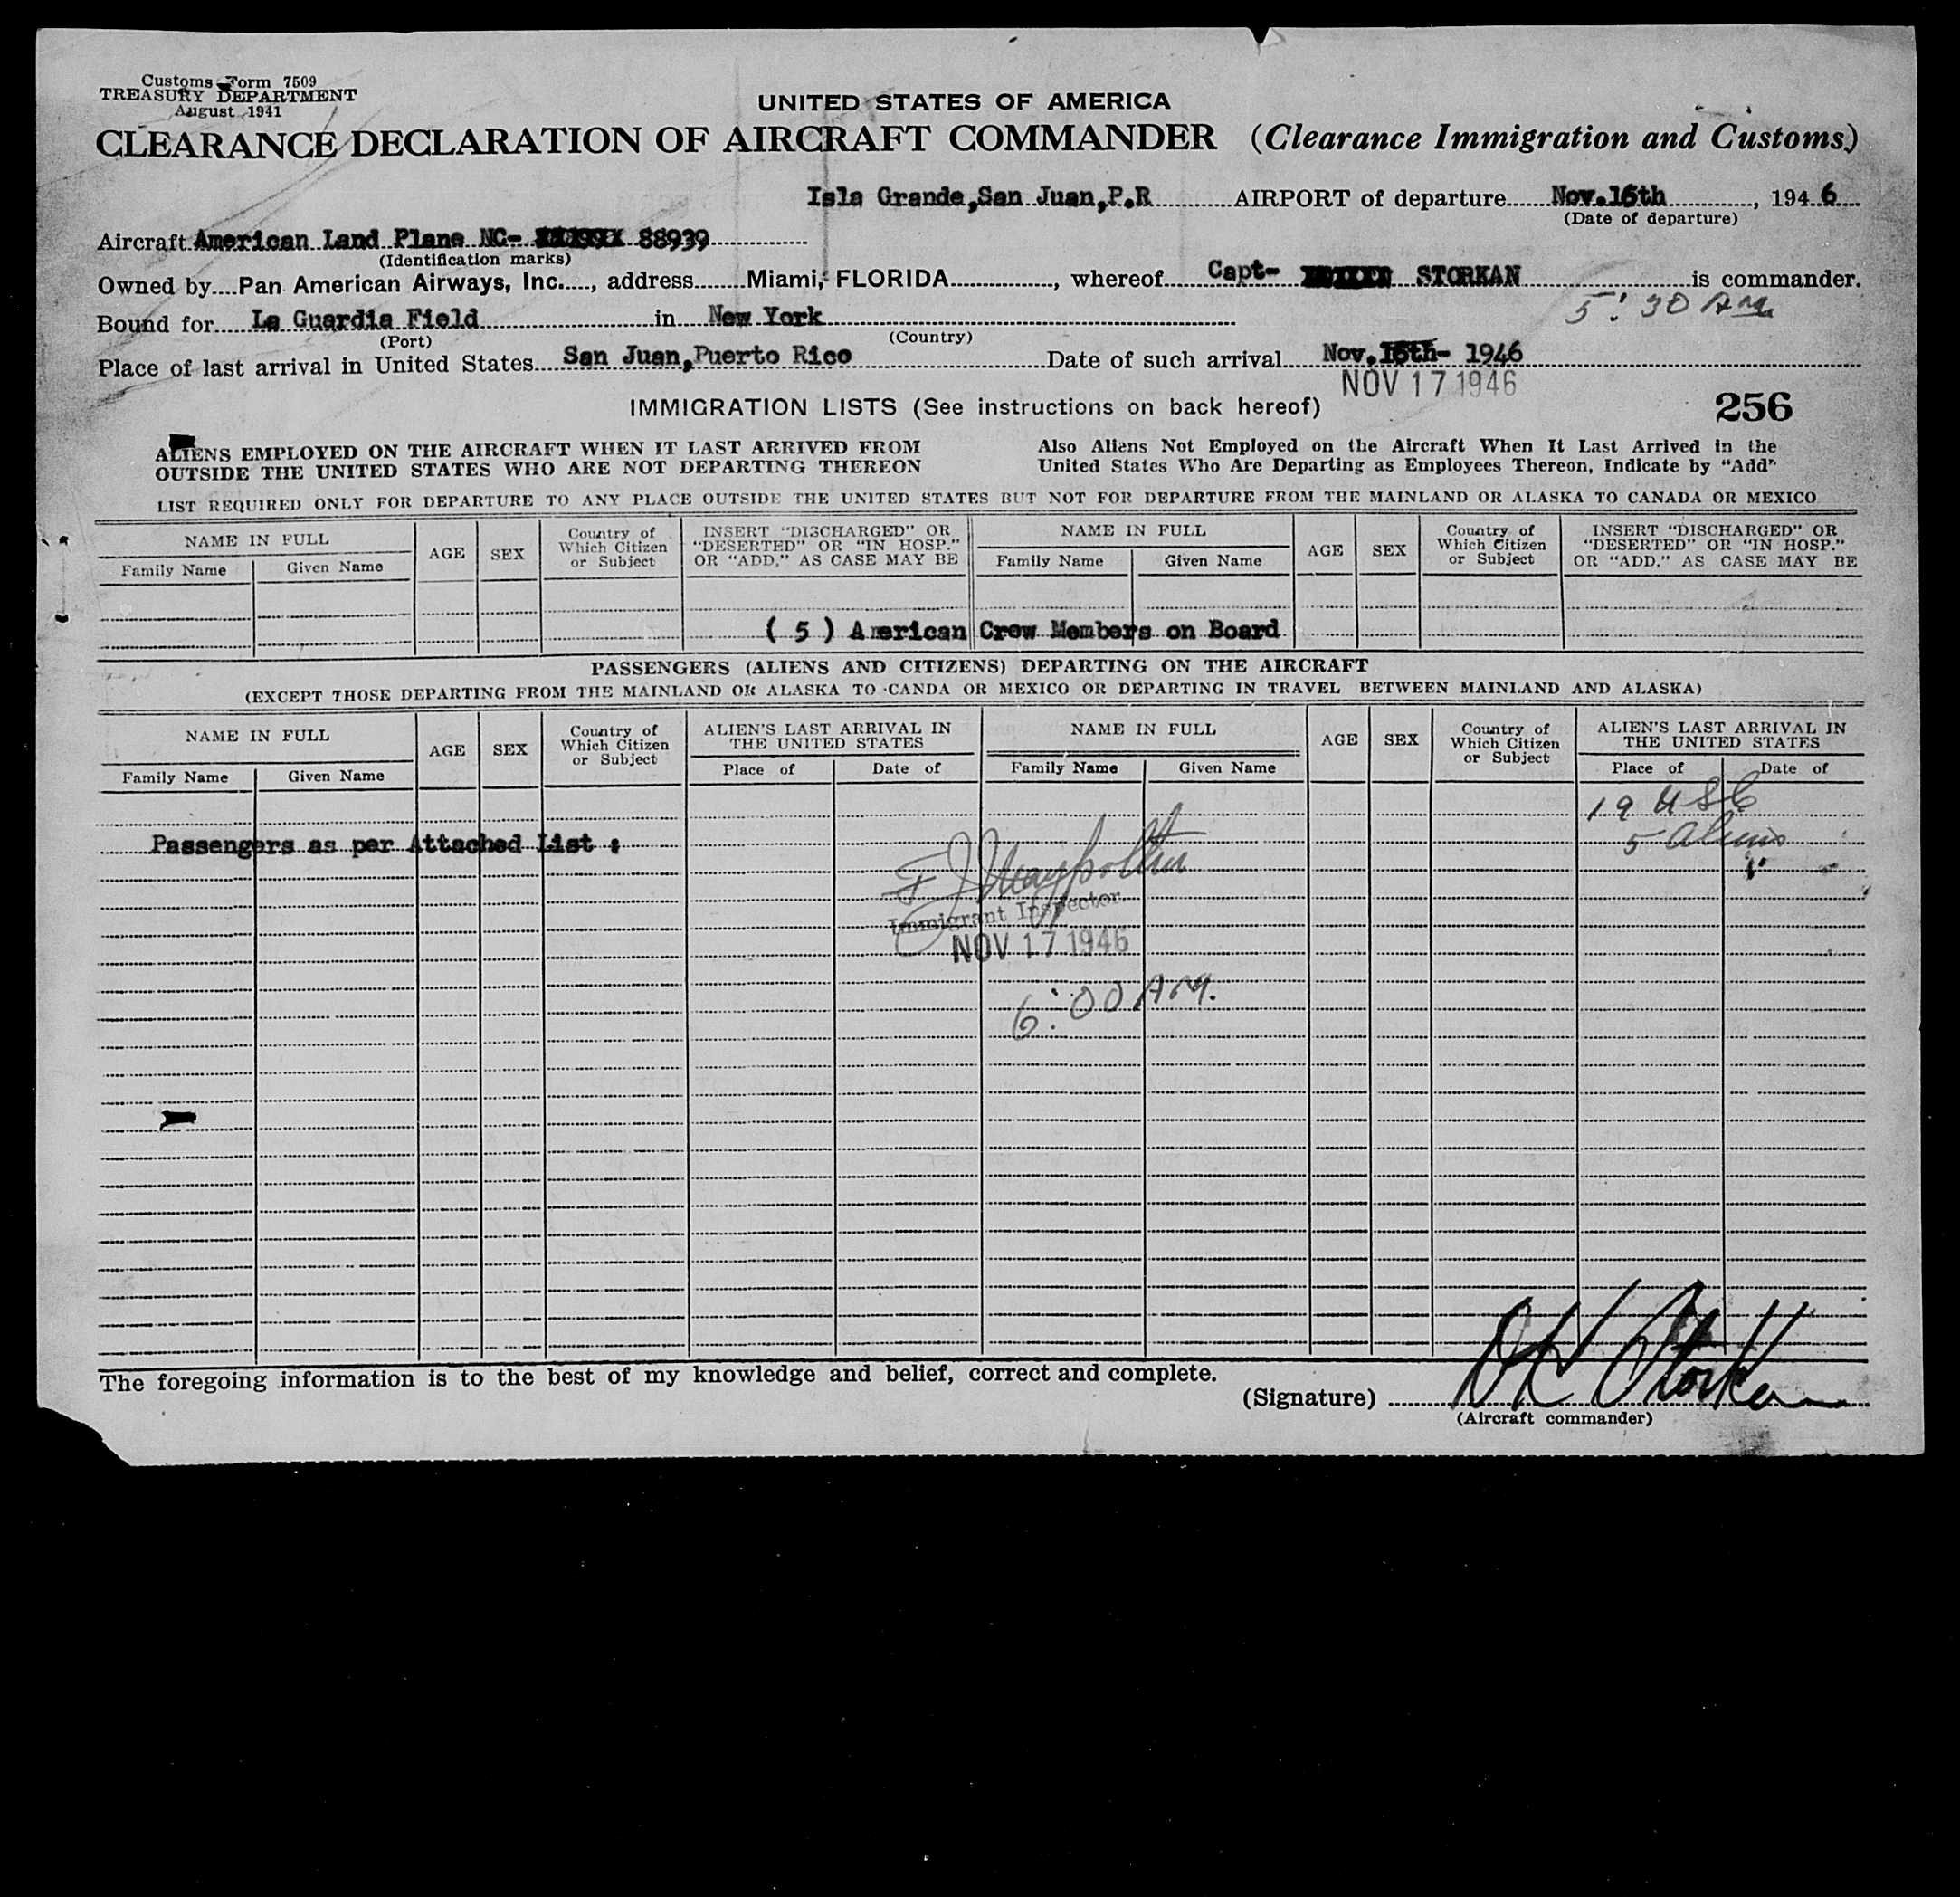 Customs Form 7509
TREASURY DEPARTMENT
August 1941
UNITED STATES OF AMERICA
CLEARANCE DECLARATION OF AIRCRAFT COMMANDER (Clearance Immigration and Customs)
Isla Grande,San Juan,P.R AIRPORT of departure Nov.16th, 1946
(Date of departure)
Aircraft American Land Plane NC- 88939
(Identification marks)
Owned by Pan American Airways, Inc., address Miami, FLORIDA, whereof Capt- STORKAN is commander.
5:30 AM
Bound for La Guardia Field in New York
(Port) (Country)
Place of last arrival in United States San Juan,Puerto Rico Date of such arrival Nov. - 1946
NOV 17 1946
IMMIGRATION LISTS (See instructions on back hereof) 256
ALIENS EMPLOYED ON THE AIRCRAFT WHEN IT LAST ARRIVED FROM
OUTSIDE THE UNITED STATES WHO ARE NOT DEPARTING THEREON
Also Aliens Not Employed on the Aircraft When It Last Arrived in the
United States Who Are Departing as Employees Thereon, Indicate by "Add"
LIST REQUIRED ONLY FOR DEPARTURE TO ANY PLACE OUTSIDE THE UNITED STATES BUT NOT FOR DEPARTURE FROM THE MAINLAND OR ALASKA TO CANADA OR MEXICO
NAME IN FULL
Family Name Given Name
AGE
SEX
Country of
Which Citizen
or Subject
INSERT "DISCHARGED" OR
"DESERTED" OR "IN HOSP."
OR "ADD," AS CASE MAY BE
NAME IN FULL
Family Name Given Name
AGE
SEX
Country of
Which Citizen
or Subject
INSERT "DISCHARGED" OR
"DESERTED" OR "IN HOSP."
OR "ADD," AS CASE MAY BE
( 5 ) American Crew Members on Board
PASSENGERS (ALIENS AND CITIZENS) DEPARTING ON THE AIRCRAFT
(EXCEPT THOSE DEPARTING FROM THE MAINLAND OR ALASKA TO CANDA OR MEXICO OR DEPARTING IN TRAVEL BETWEEN MAINLAND AND ALASKA)
NAME IN FULL
Family Name Given Name
AGE
SEX
Country of
Which Citizen
or Subject
ALIEN'S LAST ARRIVAL IN
THE UNITED STATES
Place of Date of
NAME IN FULL
Family Name Given Name
AGE
SEX
Country of
Which Citizen
or Subject
ALIEN'S LAST ARRIVAL IN
THE UNITED STATES
Place of Date of
19 USC
5 Aliens
Passengers as per Attached List :
Immigrant Inspector
NOV 17 1946
6:00 AM.
The foregoing information is to the best of my knowledge and belief, correct and complete.
(Signature) Storkan
(Aircraft commander)